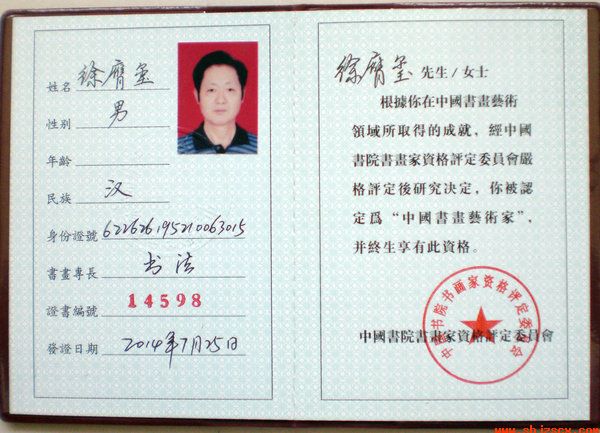 姓名 徐膺玺
性别 男
年齡
民族 汉
身份證號 622626195210063015
書畫專長 书法
證書編號 14598
發證日期 2014年7月25日
徐膺玺 先生/女士
根據你在中國書畫藝術
領域所取得的成就，經中國
書院書畫家資格評定委員會嚴
格評定後研究決定，你被認
定爲“中國書畫藝術家”，
并終生享有此資格。
中國書院書畫家資格評定委員會
中國书院书画家资格评定委员会